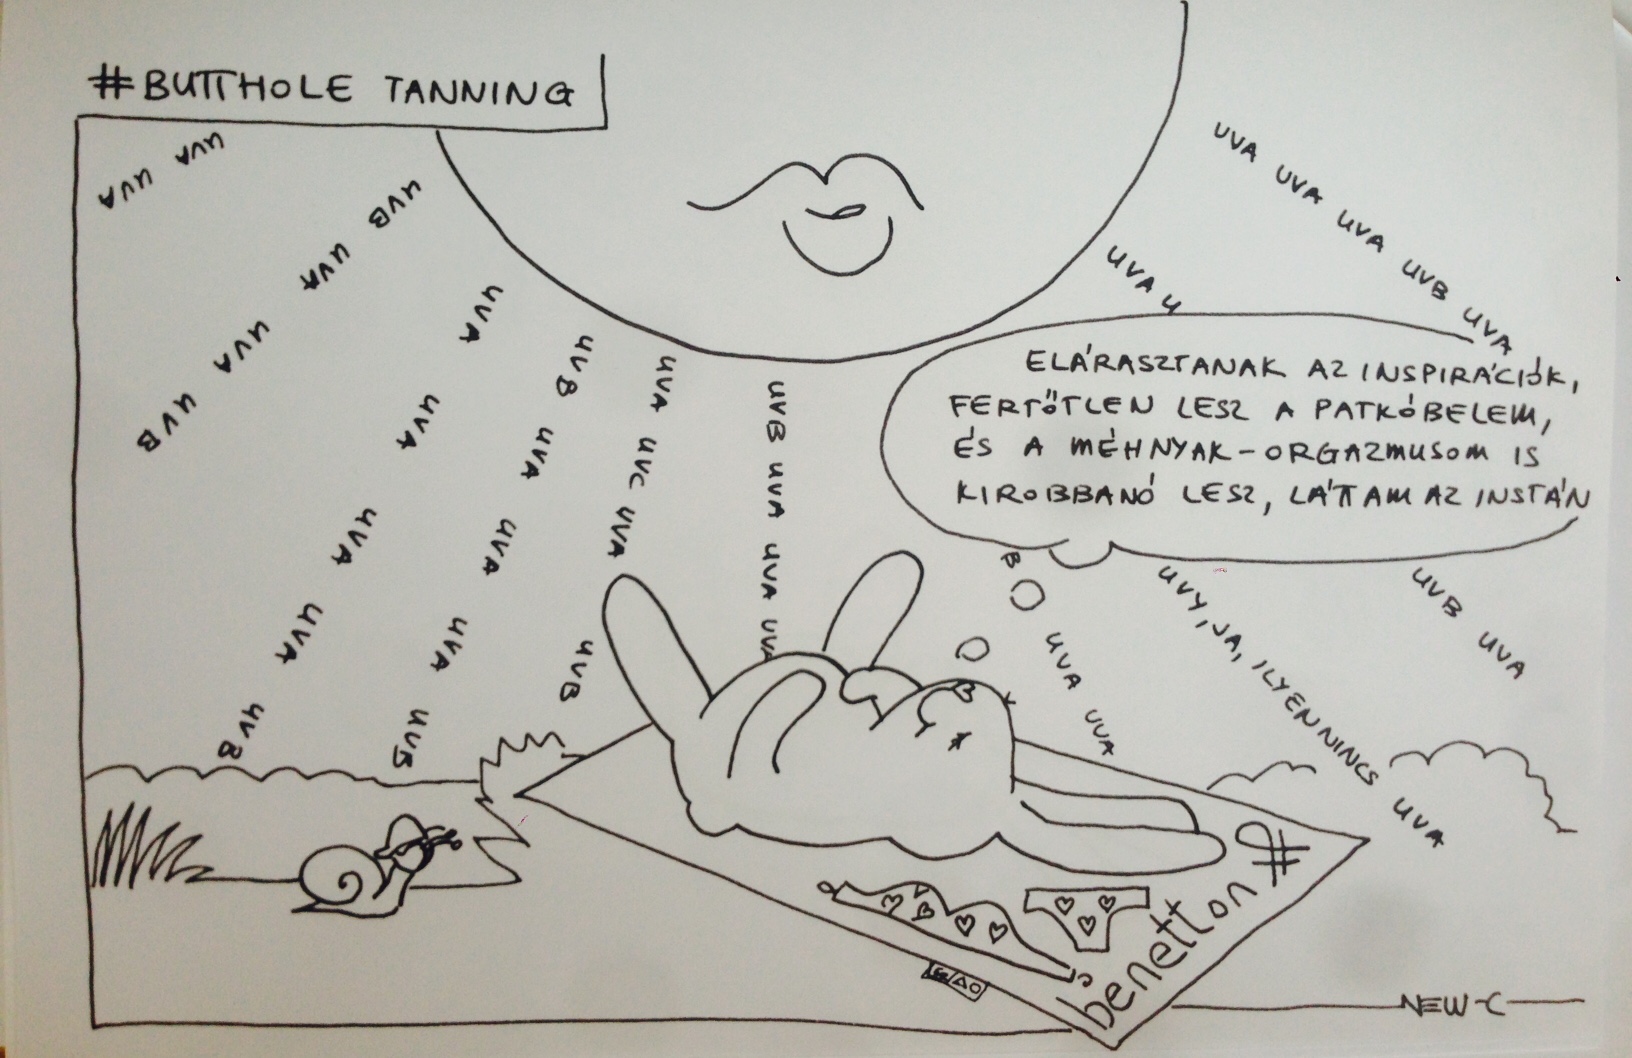 #BUTTHOLE TANNING
UVA UVA
UVB UVA UVA UVB
UVA UVA UVA UVA UVB
UVB UVA UVA UVA UVB
UVA UVC UVA UVB
UVB UVA UVA UVA
UVA UVA UVA UVB UVA
UVA U
ELÁRASZTANAK AZ INSPIRÁCIÓK,
FERTŐTLEN LESZ A PATKÓBELEM,
ÉS A MÉHNYAK-ORGAZMUSOM IS
KIROBBANÓ LESZ, LÁTTAM AZ INSTÁN
B UVA UVA
UVY, JA, ILYEN NINCS UVA
UVB UVA
benetton
NEW-C